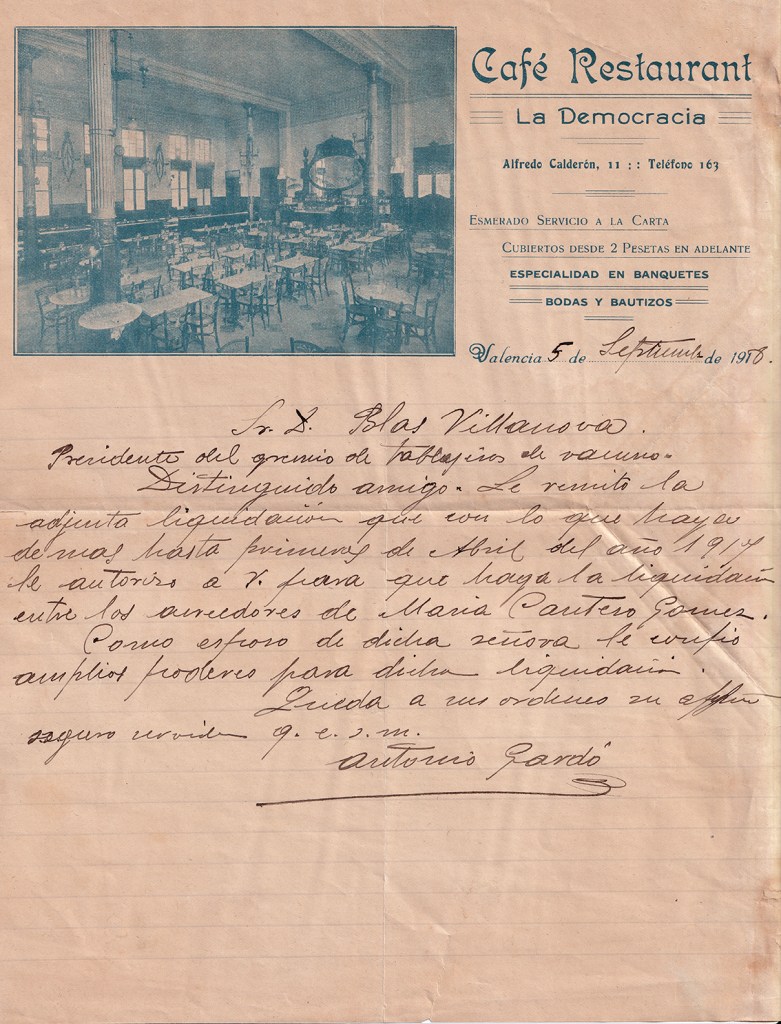 Café Restaurant
La Democracia
Alfredo Calderón, 11 : : Teléfono 163
Esmerado Servicio a la Carta
Cubiertos desde 2 Pesetas en adelante
ESPECIALIDAD EN BANQUETES
BODAS Y BAUTIZOS
Valencia 5 de Septiembre de 1918.
Sr. D. Blas Villanova.
Presidente del gremio de tablajeros de vacuno.
Distinguido amigo. Le remito la
adjunta liquidación que con lo que haya
de mas hasta primeros de Abril del año 1917
le autorizo a V. para que haga la liquidación
entre los acreedores de Maria Cantero Gomez.
Como esposo de dicha señora le confio
amplios poderes para dicha liquidación.
Queda a sus ordenes su
seguro servidor q. e. s. m.
Antonio Gardó